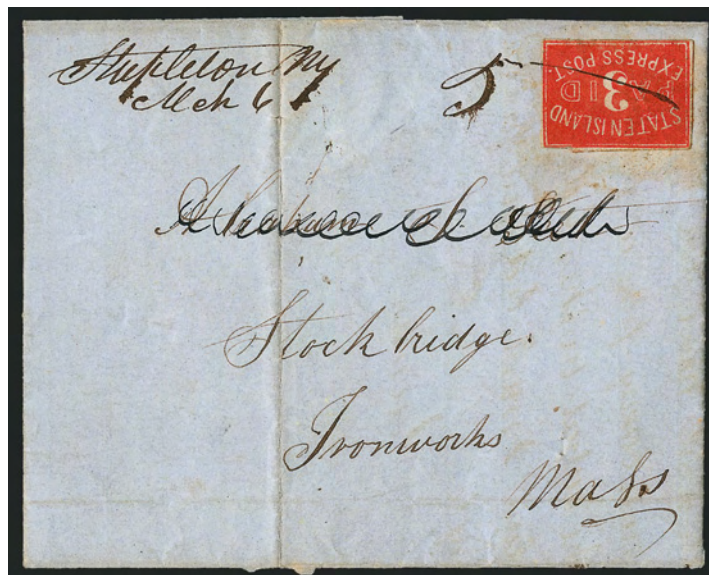 Stapleton NY
Mch 6
5
STATEN ISLAND
PAID
3
EXPRESS POST.
Stockbridge.
Ironworks
Mass